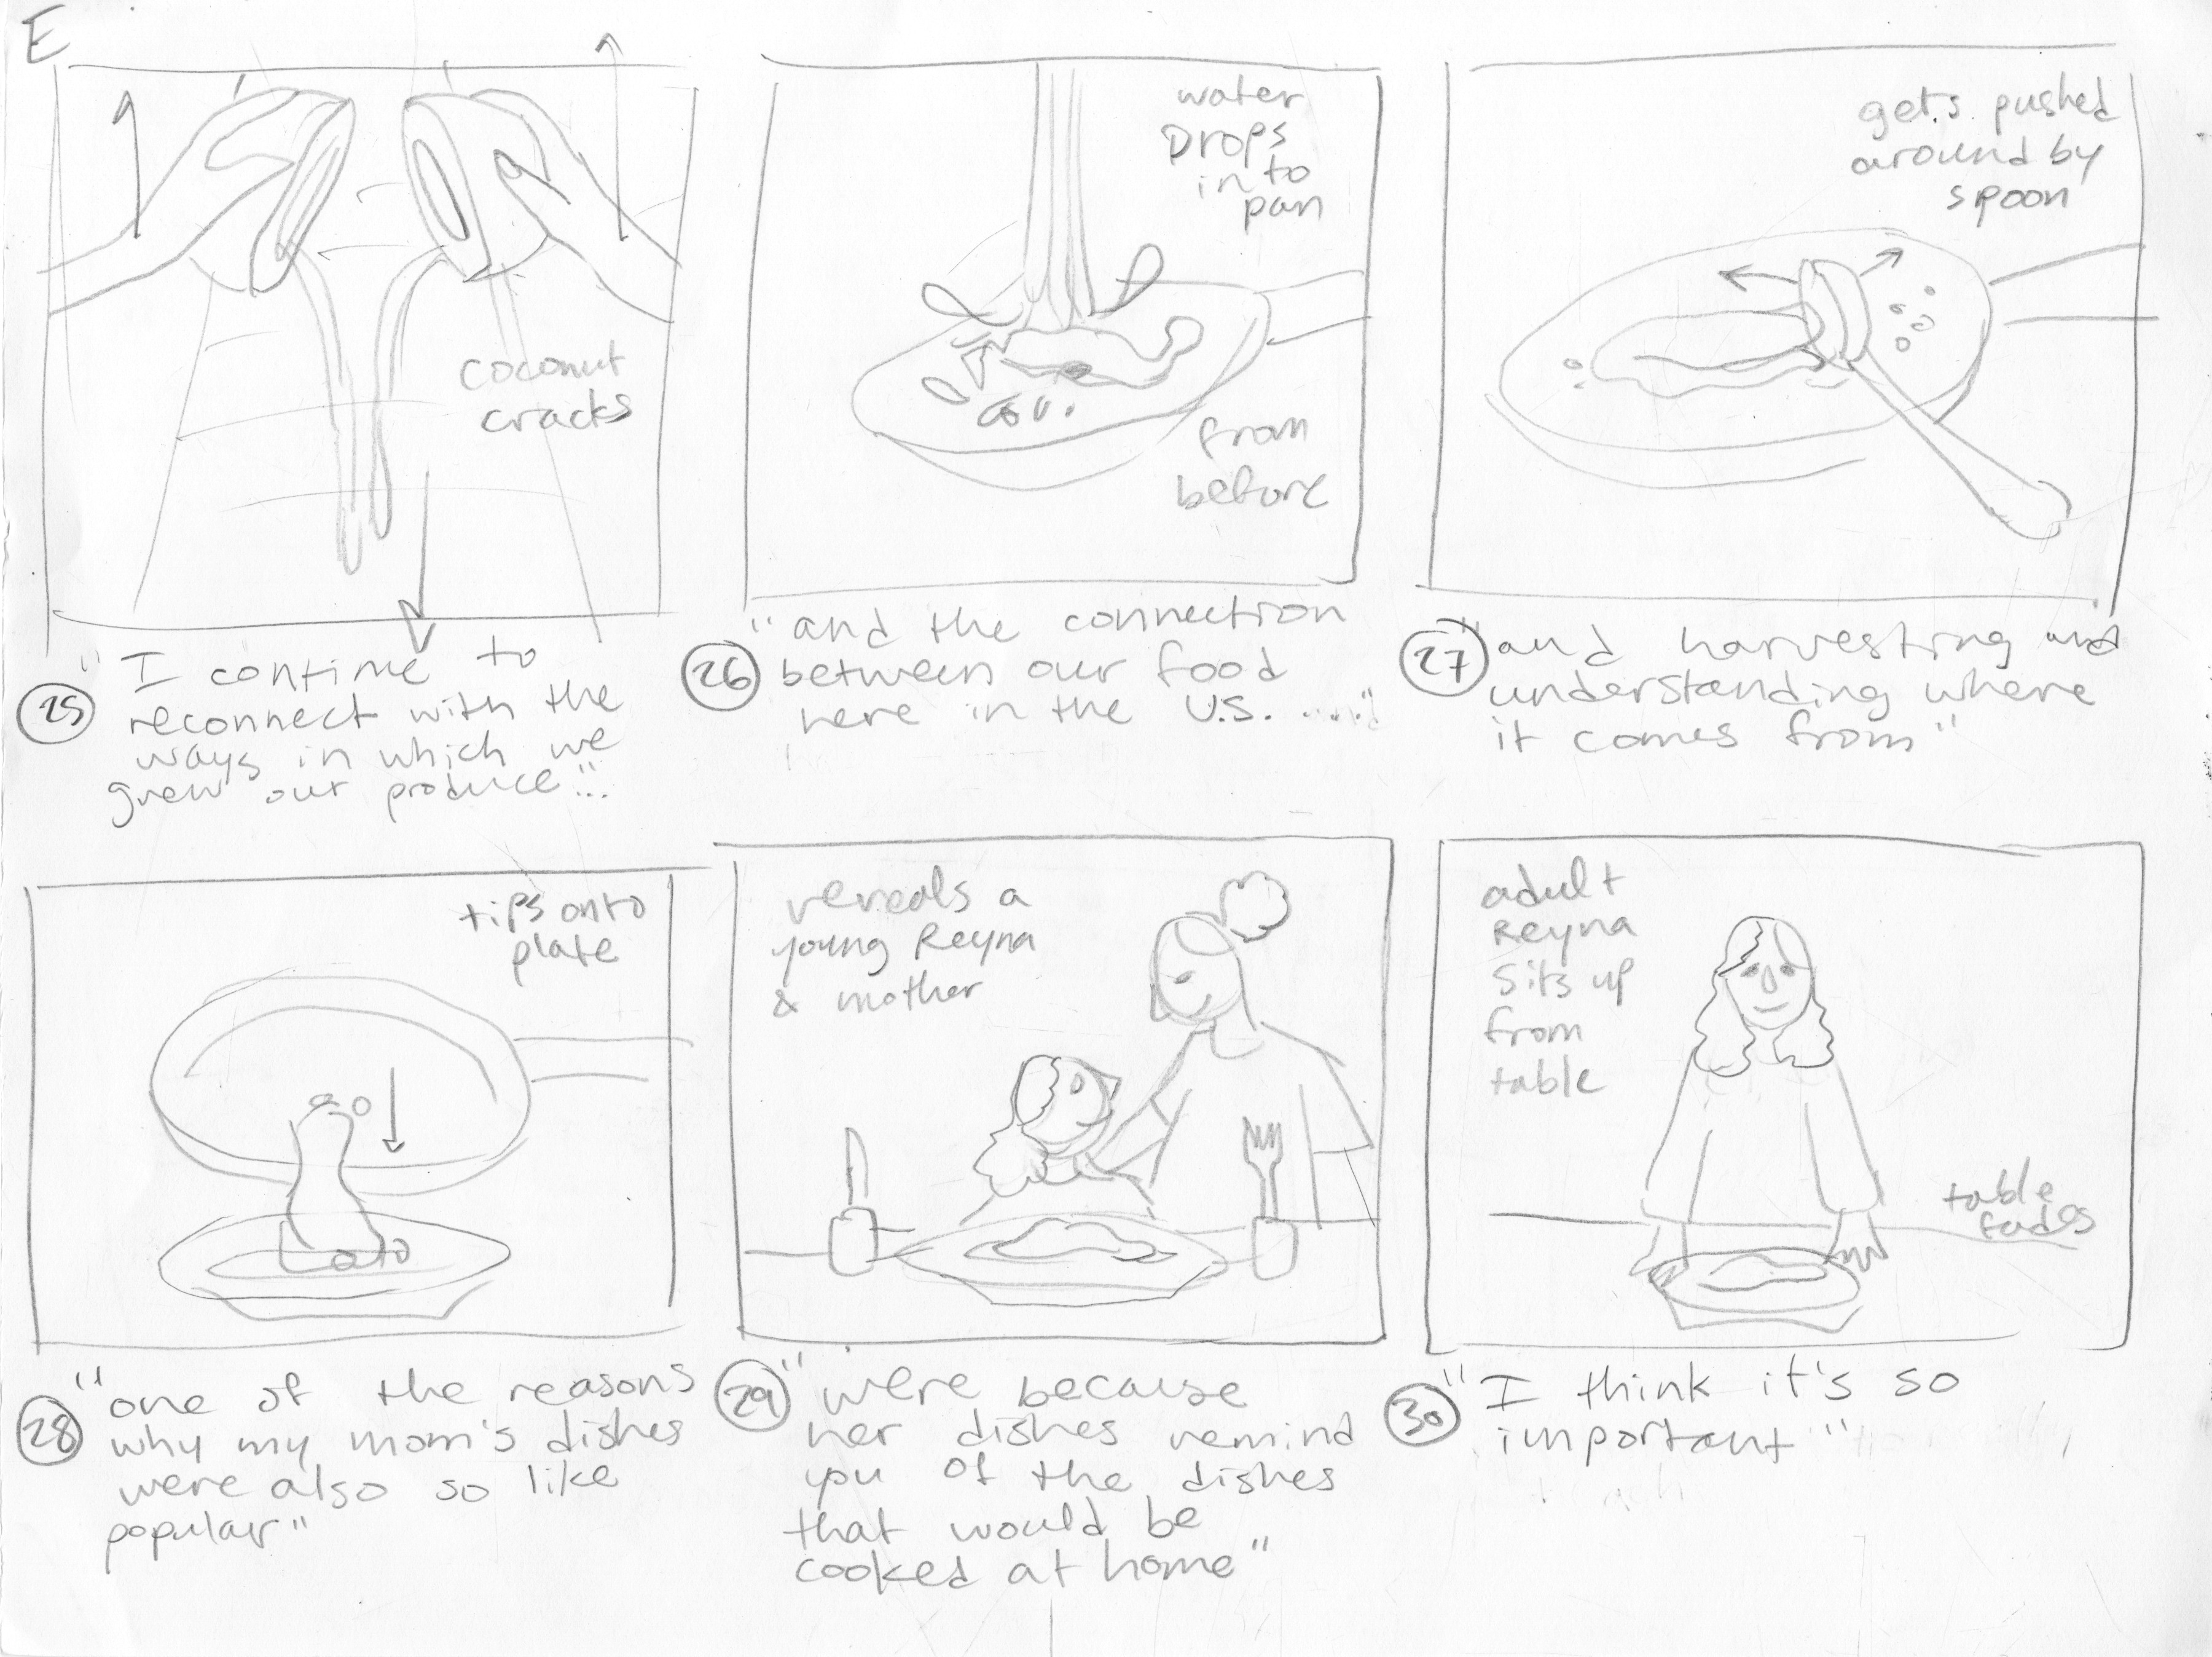 E
coconut
cracks
"I continue to
25 reconnect with the
ways in which we
grew our produce"...
water
Drops
in to
pan
from
before
"and the connection
26 between our food
here in the U.S. ....."
gets pushed
around by
spoon
27 "and harvesting and
understanding where
it comes from"
tips onto
plate
"one of the reasons
28 why my mom's dishes
were also so like
popular"
reveals a
young Reyna
& mother
29 "were because
her dishes remind
you of the dishes
that would be
cooked at home"
adult
Reyna
sits up
from
table
table
fades
30 "I think it's so
important"